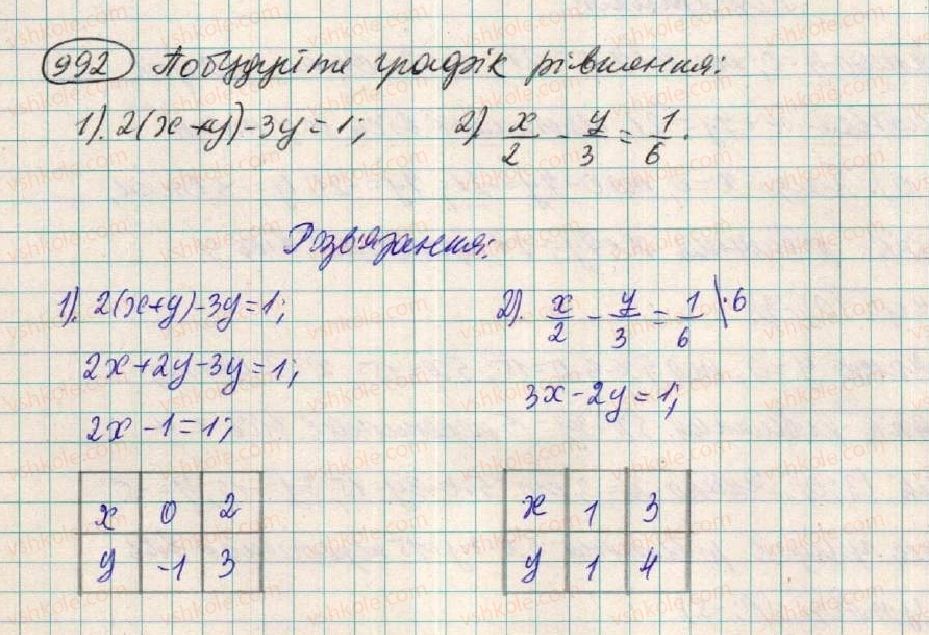 992 Побудуйте графік рівняння:
1). 2(x+y)-3y=1; 2) x/2 - y/3 = 1/6.
Розв'язання:
1). 2(x+y)-3y=1; 2). x/2 - y/3 = 1/6 |·6
2x+2y-3y=1; 3x-2y=1;
2x-1=1;
x 0 2 x 1 3
y -1 3 y 1 4